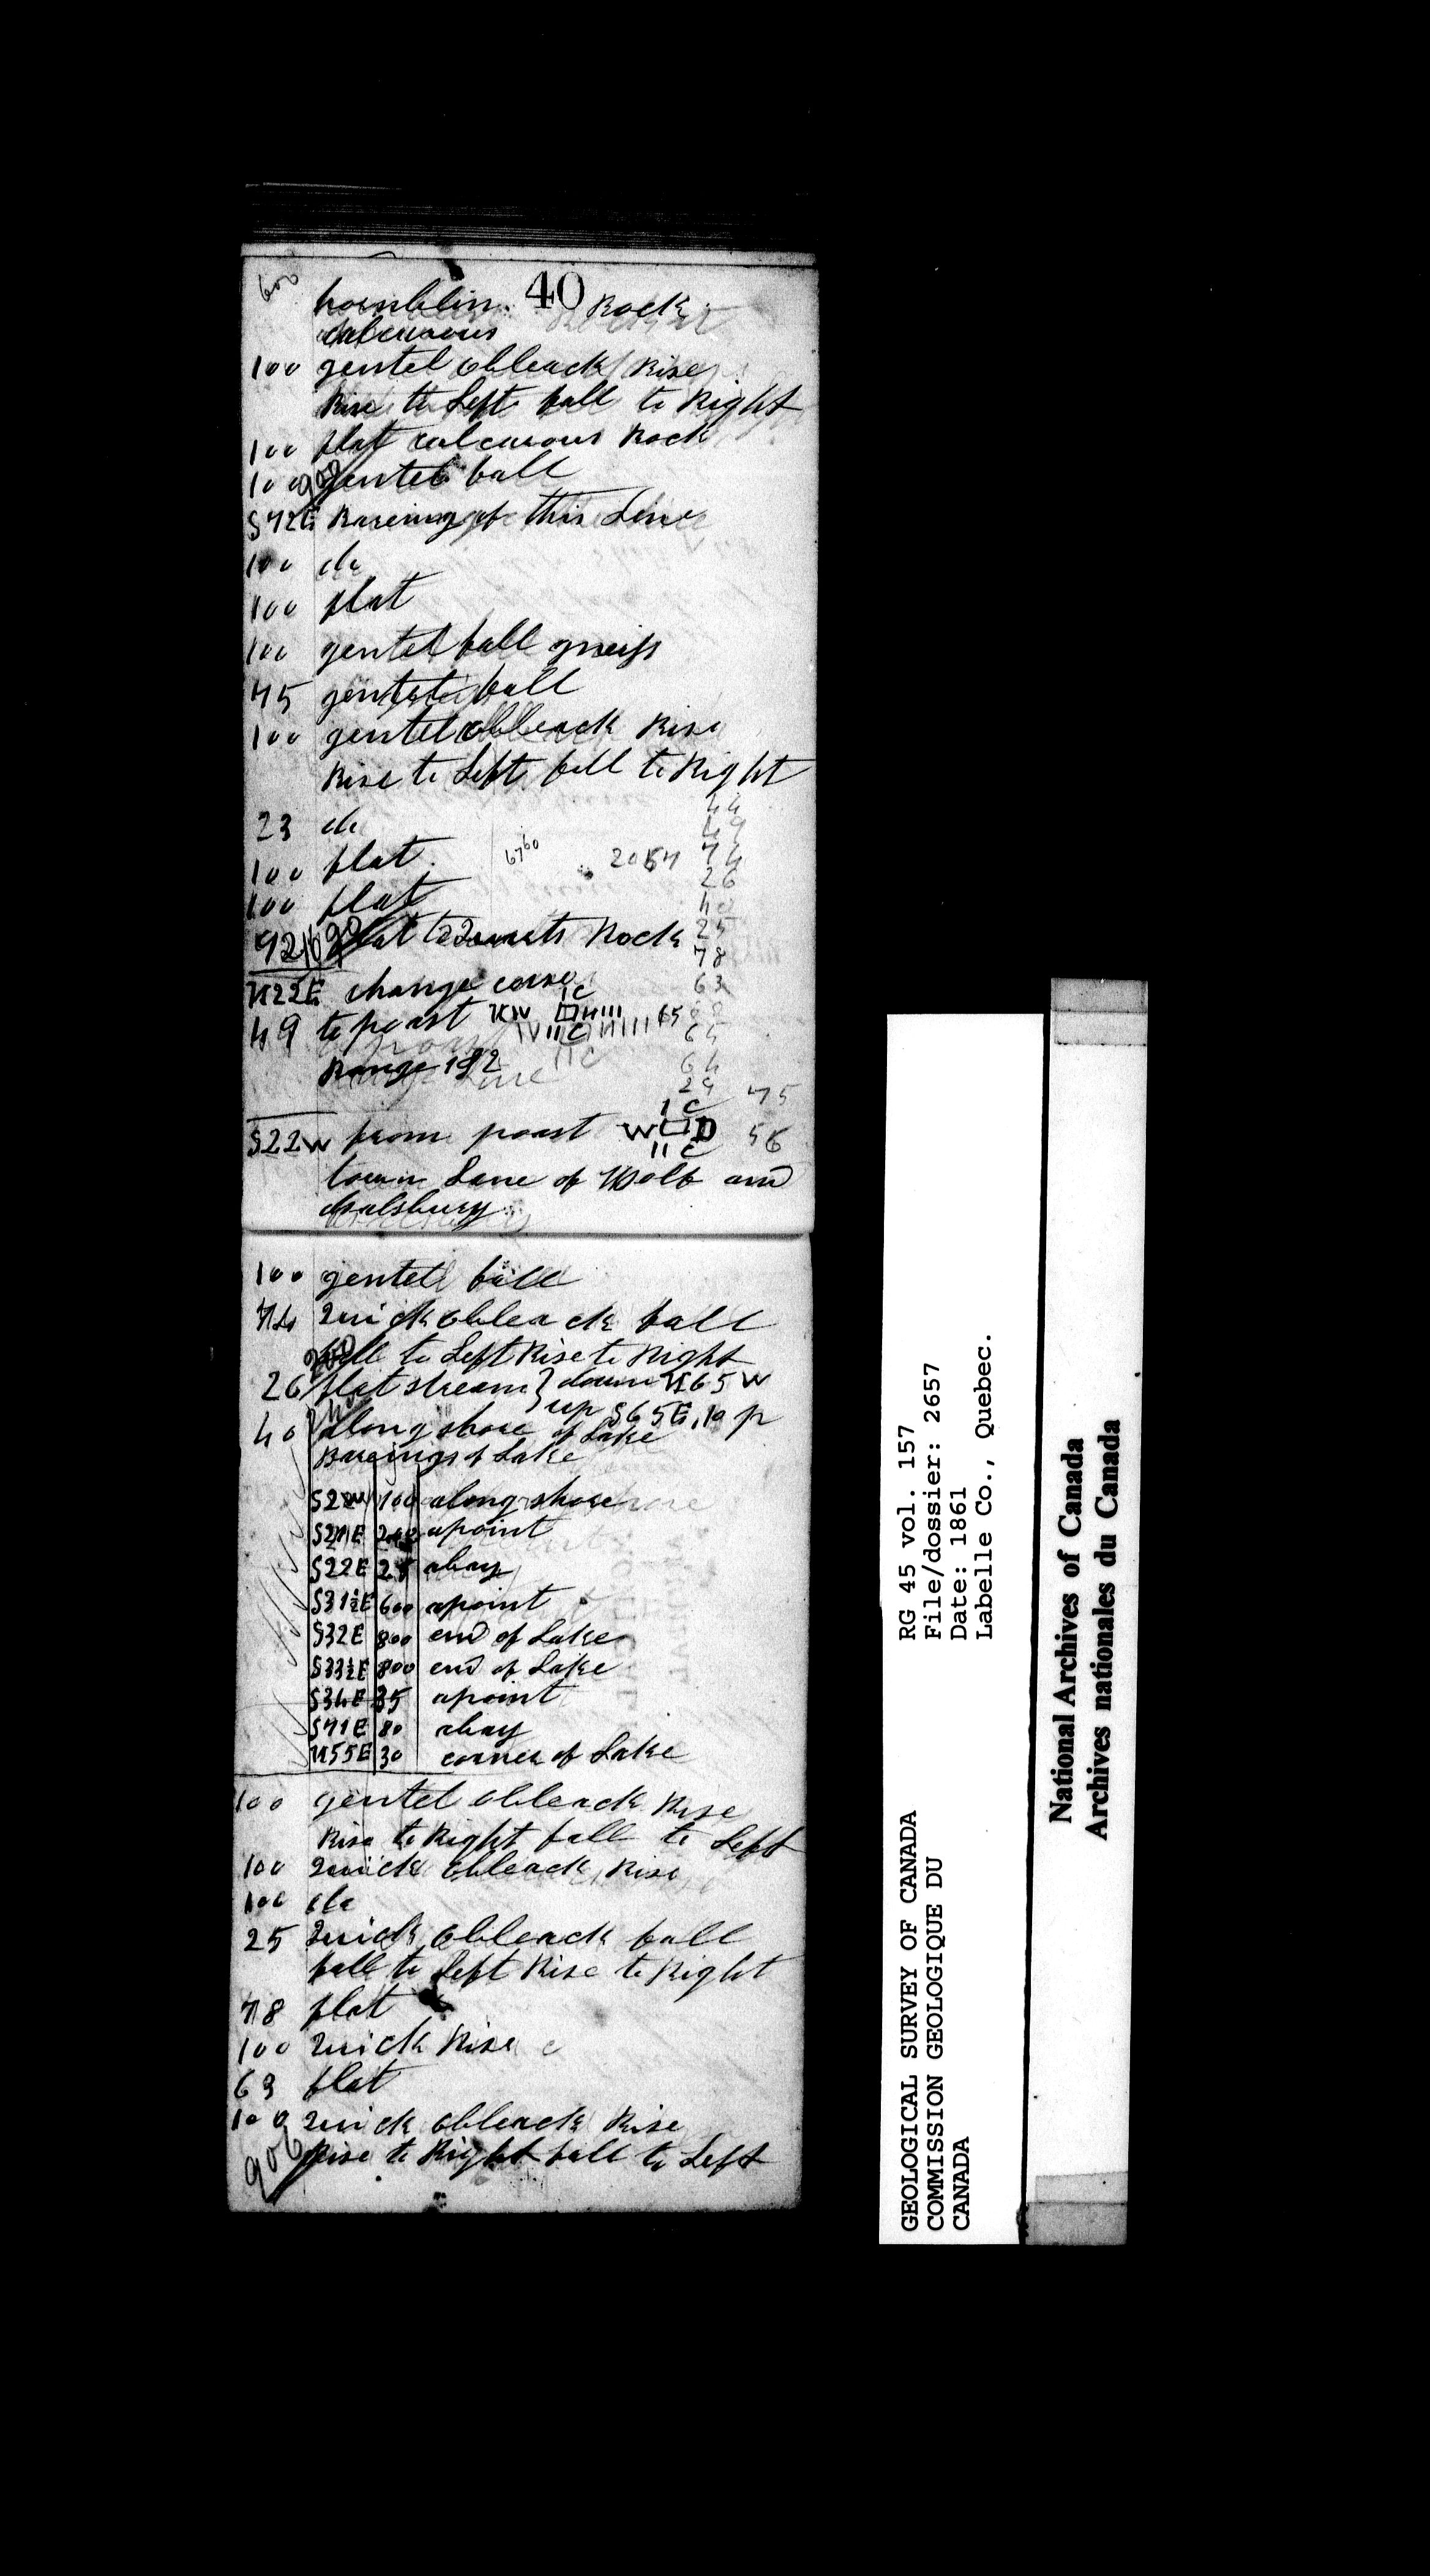 600
40
hornblin. Rock
calcuaous
100 gentel obleack Rise
Rise to Left fall to Right
100 flat calcuaous Rock
100 gentel fall
S72E Bareing of this Line
100 do
100 flat
100 gentel fall gneiss
75 gentel fall
100 gentel obleack Rise
Rise to Left fall to Right
44
23 do 49
100 flat 6760 2057 74
26
100 flat 40
92 flat Rock 25
78
N22E change corse 63
1C
49 to poast
65
Range 1 & 2 64
29 75
1 C
S22W from poast W D 56
11 C
town Line of Wolf and
Salsbury
100 gentel fall
74 Quick obleack fall
fall to Left Rise to Right
26 flat stream } down N65W
up S65E, 10 p
40 along shore of Lake
Bareings of Lake
S22W 100 along shore
S21E 200 apoint
S22E 25 abay
S31½E 600 apoint
S32E 800 end of Lake
S33½E 800 end of Lake
S34E 35 apoint
S71E 80 abay
N55E 30 corner of Lake
100 gentel obleack Rise
Rise to Right fall to Left
100 Quick obleack Rise
100 do
25 Quick obleack fall
fall to Left Rise to Right
78 flat
100 Quick Rise
63 flat
100 Quick obleack Rise
906 Rise to Right fall to Left
GEOLOGICAL SURVEY OF CANADA RG 45 vol. 157
COMMISSION GEOLOGIQUE DU File/dossier: 2657
CANADA Date: 1861
Labelle Co., Quebec.
National Archives of Canada
Archives nationales du Canada